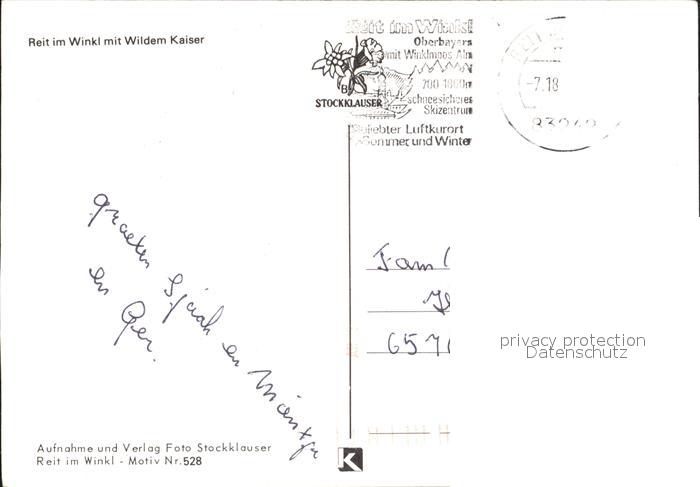 Reit im Winkl mit Wildem Kaiser
Reit im Winkl
Oberbayern
mit Winklmoos Alm
700 1800m
schneesicheres
Skizentrum
Beliebter Luftkurort
Sommer und Winter
B
STOCKKLAUSER
-7.18
83242
groeten Sjaak en Mientje
en Ger.
Fam
6571
privacy protection
Datenschutz
Aufnahme und Verlag Foto Stockklauser
Reit im Winkl - Motiv Nr. 528
K